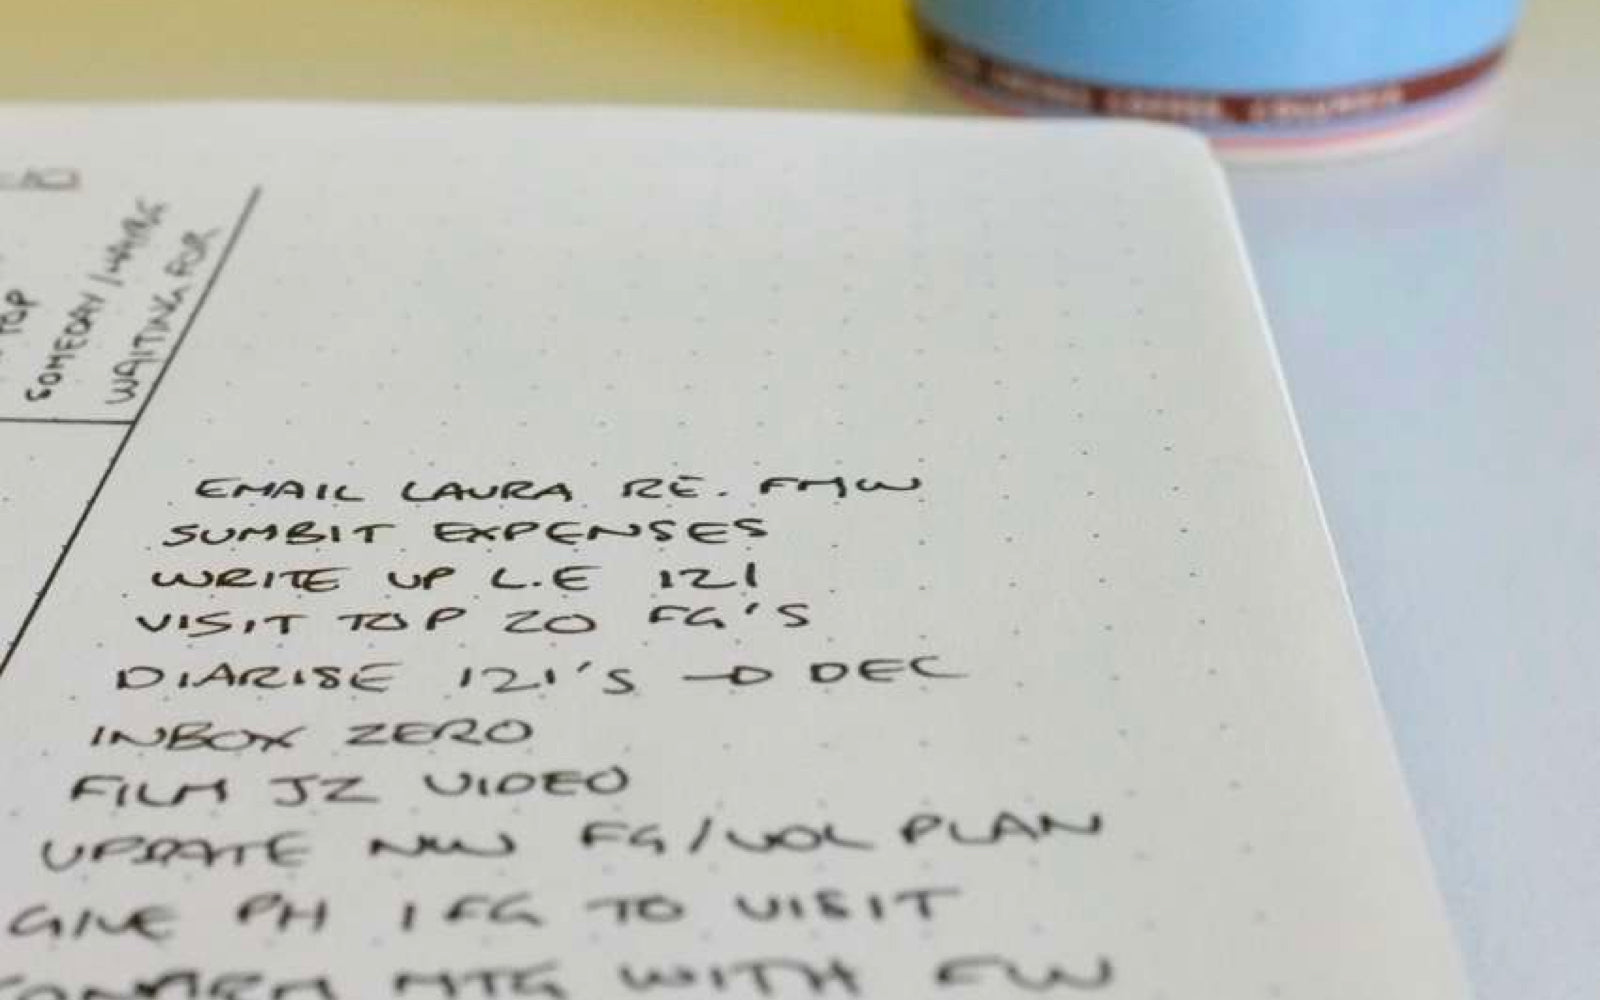 TOP
SOMEDAY / MAYBE
WAITING FOR
EMAIL LAURA RE. FMW
SUMBIT EXPENSES
WRITE UP L.E 121
VISIT TOP 20 FG'S
DIARISE 121'S → DEC
INBOX ZERO
FILM JZ VIDEO
UPDATE NW FG/VOL PLAN
GIVE PH 1 FG TO VISIT
CONFIRM MTG WITH FW